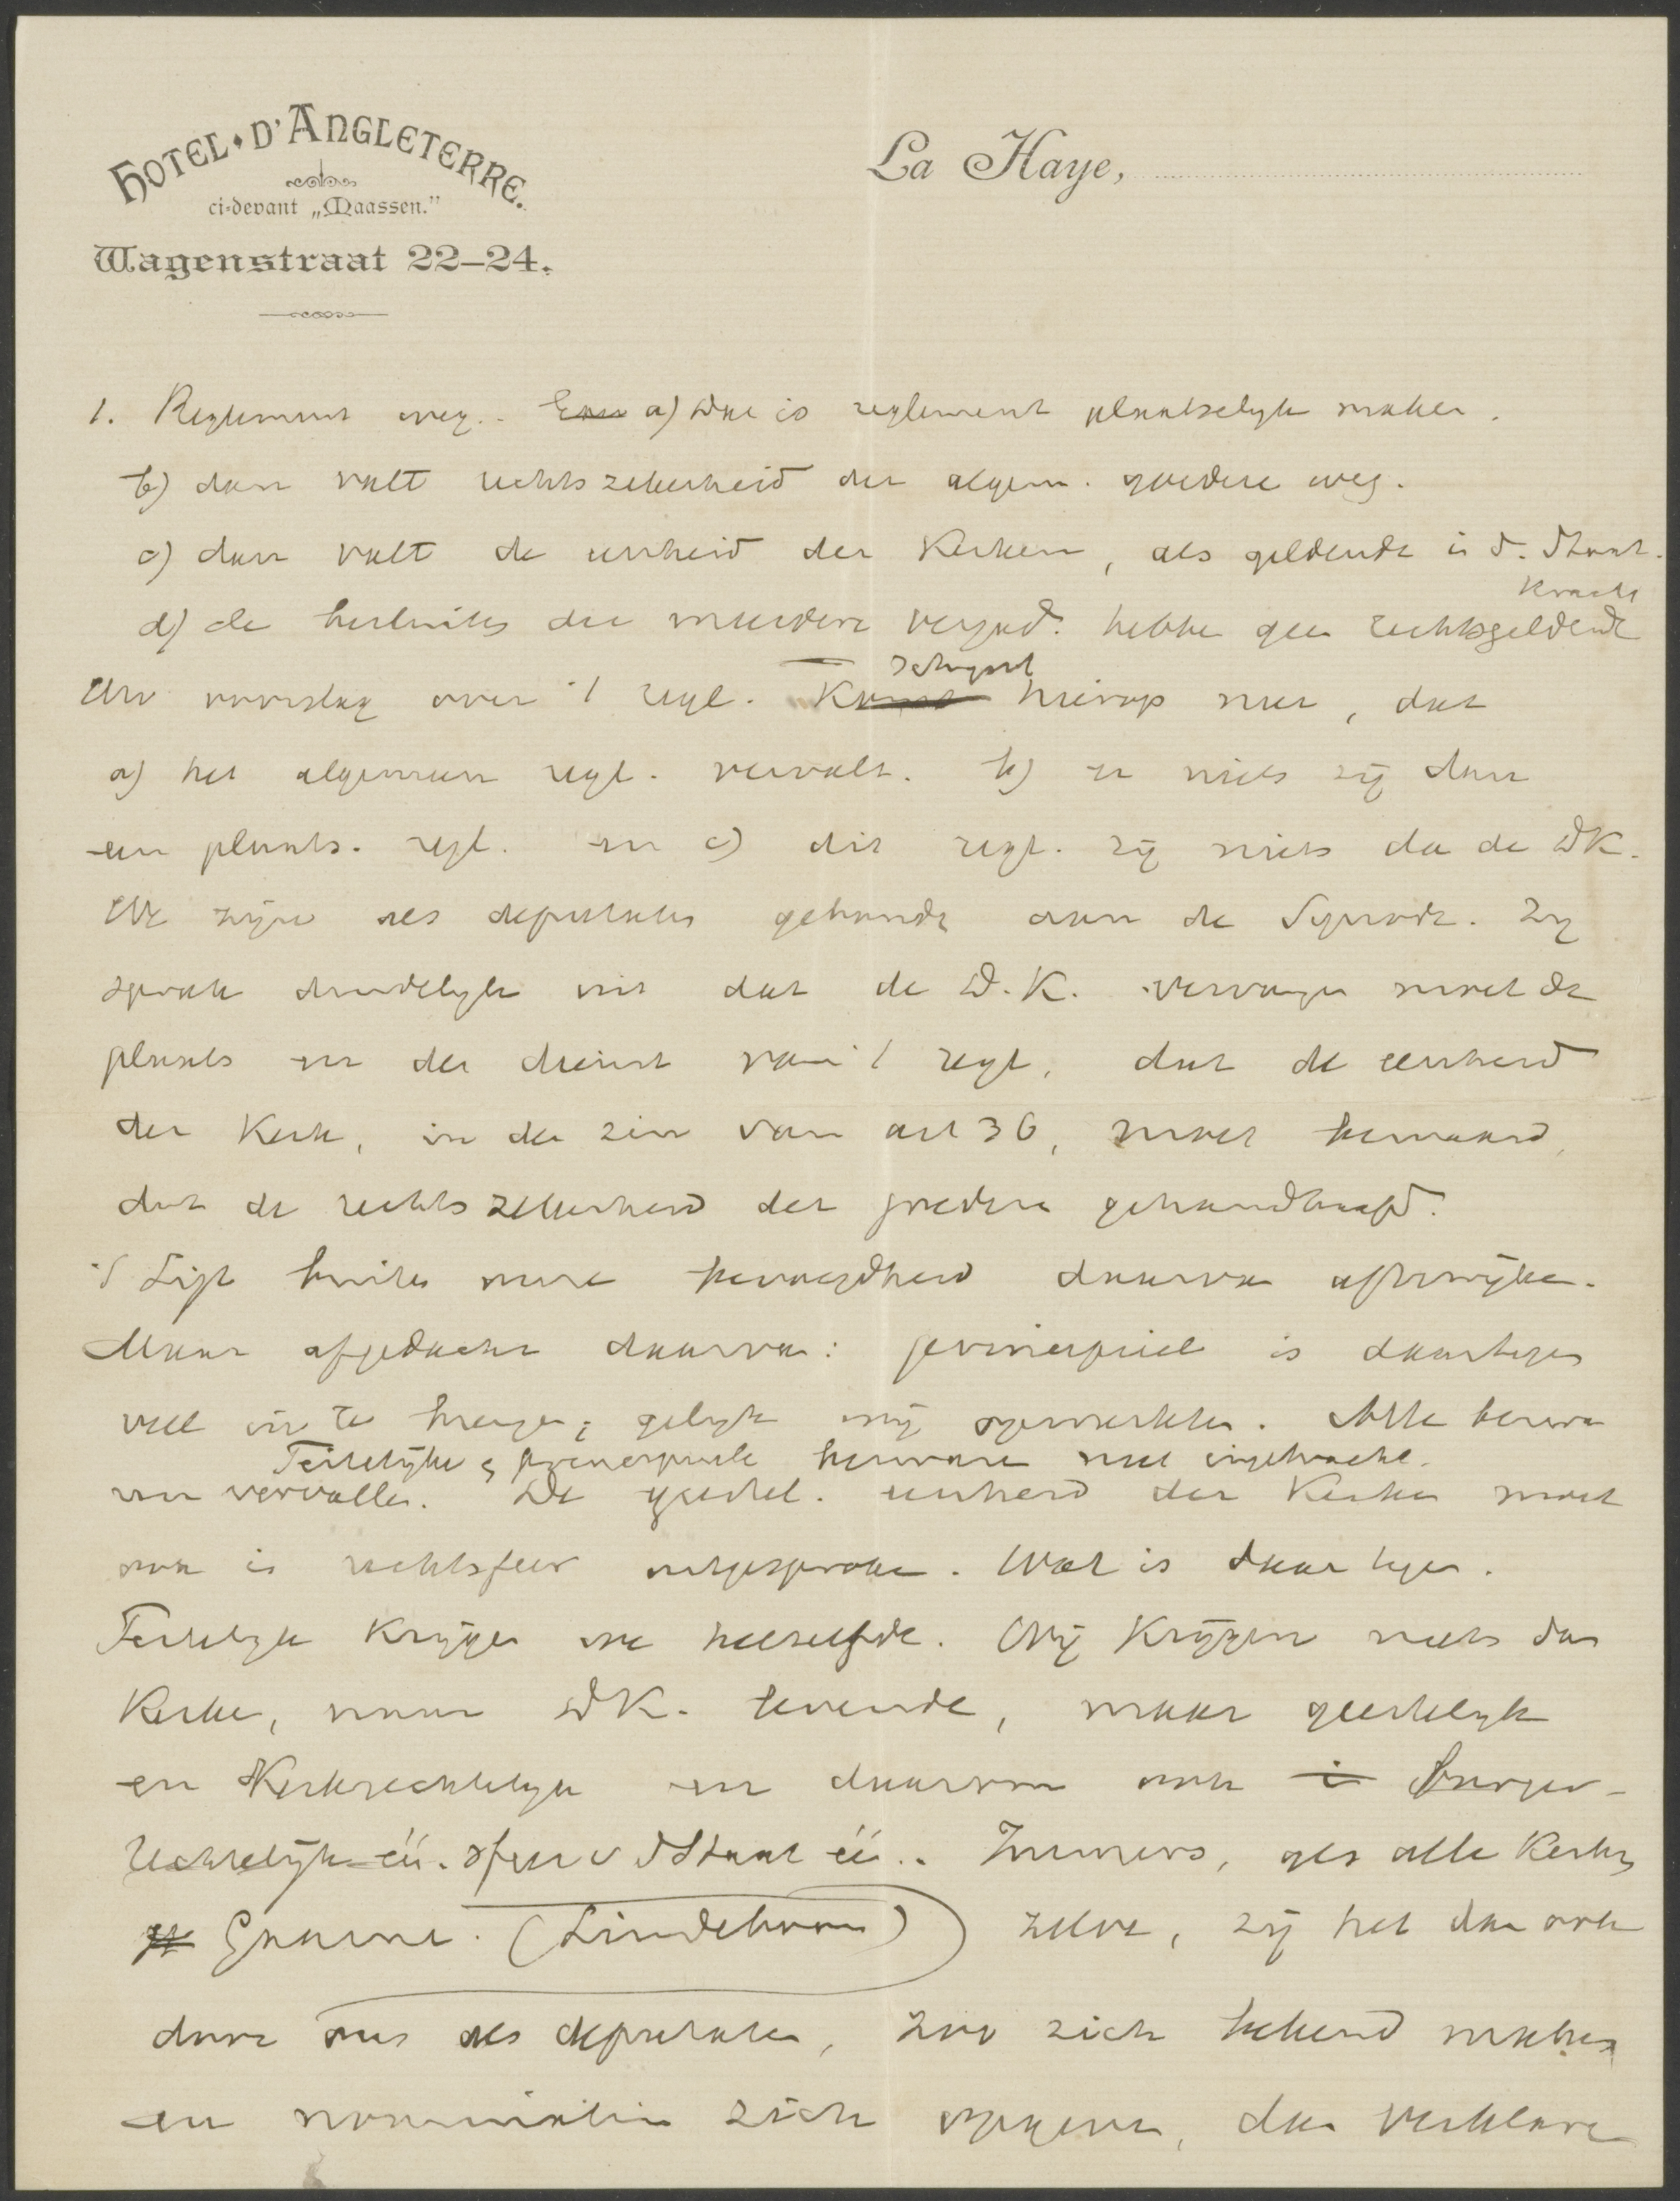 HOTEL D'ANGLETERRE.
ci-devant „Maassen."
Wagenstraat 22–24.
La Haye,
1. Reglement weg. a) Dat is reglement plaatselyk maken.
b) dan valt rechtszekerheid der algem. goedere weg.
c) dan valt de eenheid der Kerken, als geldende i d. Staat.
kracht
d) de besluiten der meerdere vergad. hebbe geen rechtsgeldende
schynt
Uw voorslag over 't regl. hierop neer, dat
a) het algemeen regl. vervalt. b) er niets zij dan
een plaats. regl. en c) dit regl. zij niets da de DK.
We zijn als deputaten gebonde aan de Synode. Zy
sprak duidelyk uit dat de D.K. vervangen moet de
plaats en den dienst van 't regl., dat de eenheid
der Kerk, in de zin van art 36, moet bewaard,
dat de rechtszekerheid der goedere gehandhaafd.
't Ligt buiten onze bevoegdheid daarva af te wijke.
Maar afgedacht daarva: principieel is daartegen
veel in te brengen; gelyk wij opmerkten. Alle bezware
Feitelijke & principieele bezware niet ingebracht.
vervallen. De geestel. eenheid der Kerken moet
ook i rechtsfeer uitgesproken. Wat is daar tegen.
Feitelyk krijgen we hetzelfde. Wij krijgen niets dan
Kerke, naar DK. levende, maar geestelyk
en Kerkrechtelyk en daarom ook burger-
rechtelijk één. Immers, als alle Kerken
(Lindeboom) zelve, zij het dan ook
door ons als deputaten, zoo zich bekend maken
en nominatim zich opgeven, dan verklare